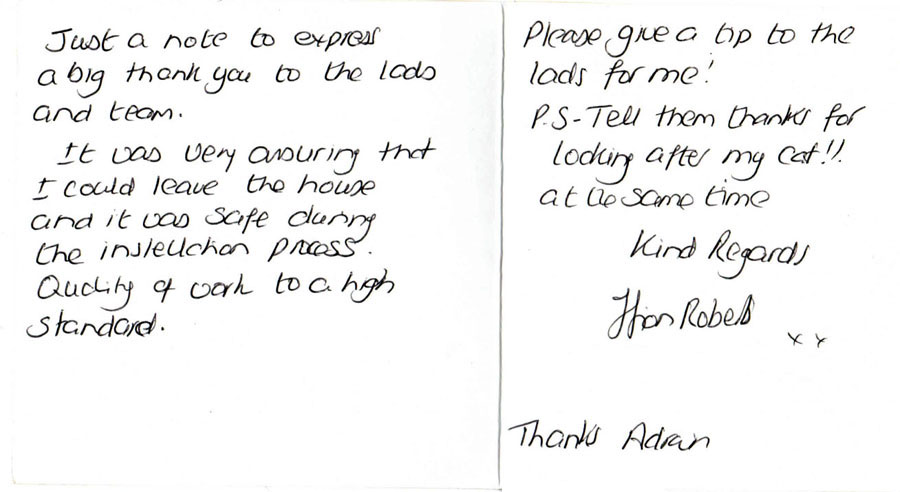 Just a note to express
a big thank you to the lads
and team.
It was very assuring that
I could leave the house
and it was safe during
the installation process.
Quality of work to a high
standard.
Please give a tip to the
lads for me!
P.S-Tell them thanks for
looking after my cat!!.
at the same time
Kind Regards
Roberts
x x
Thanks Adrian